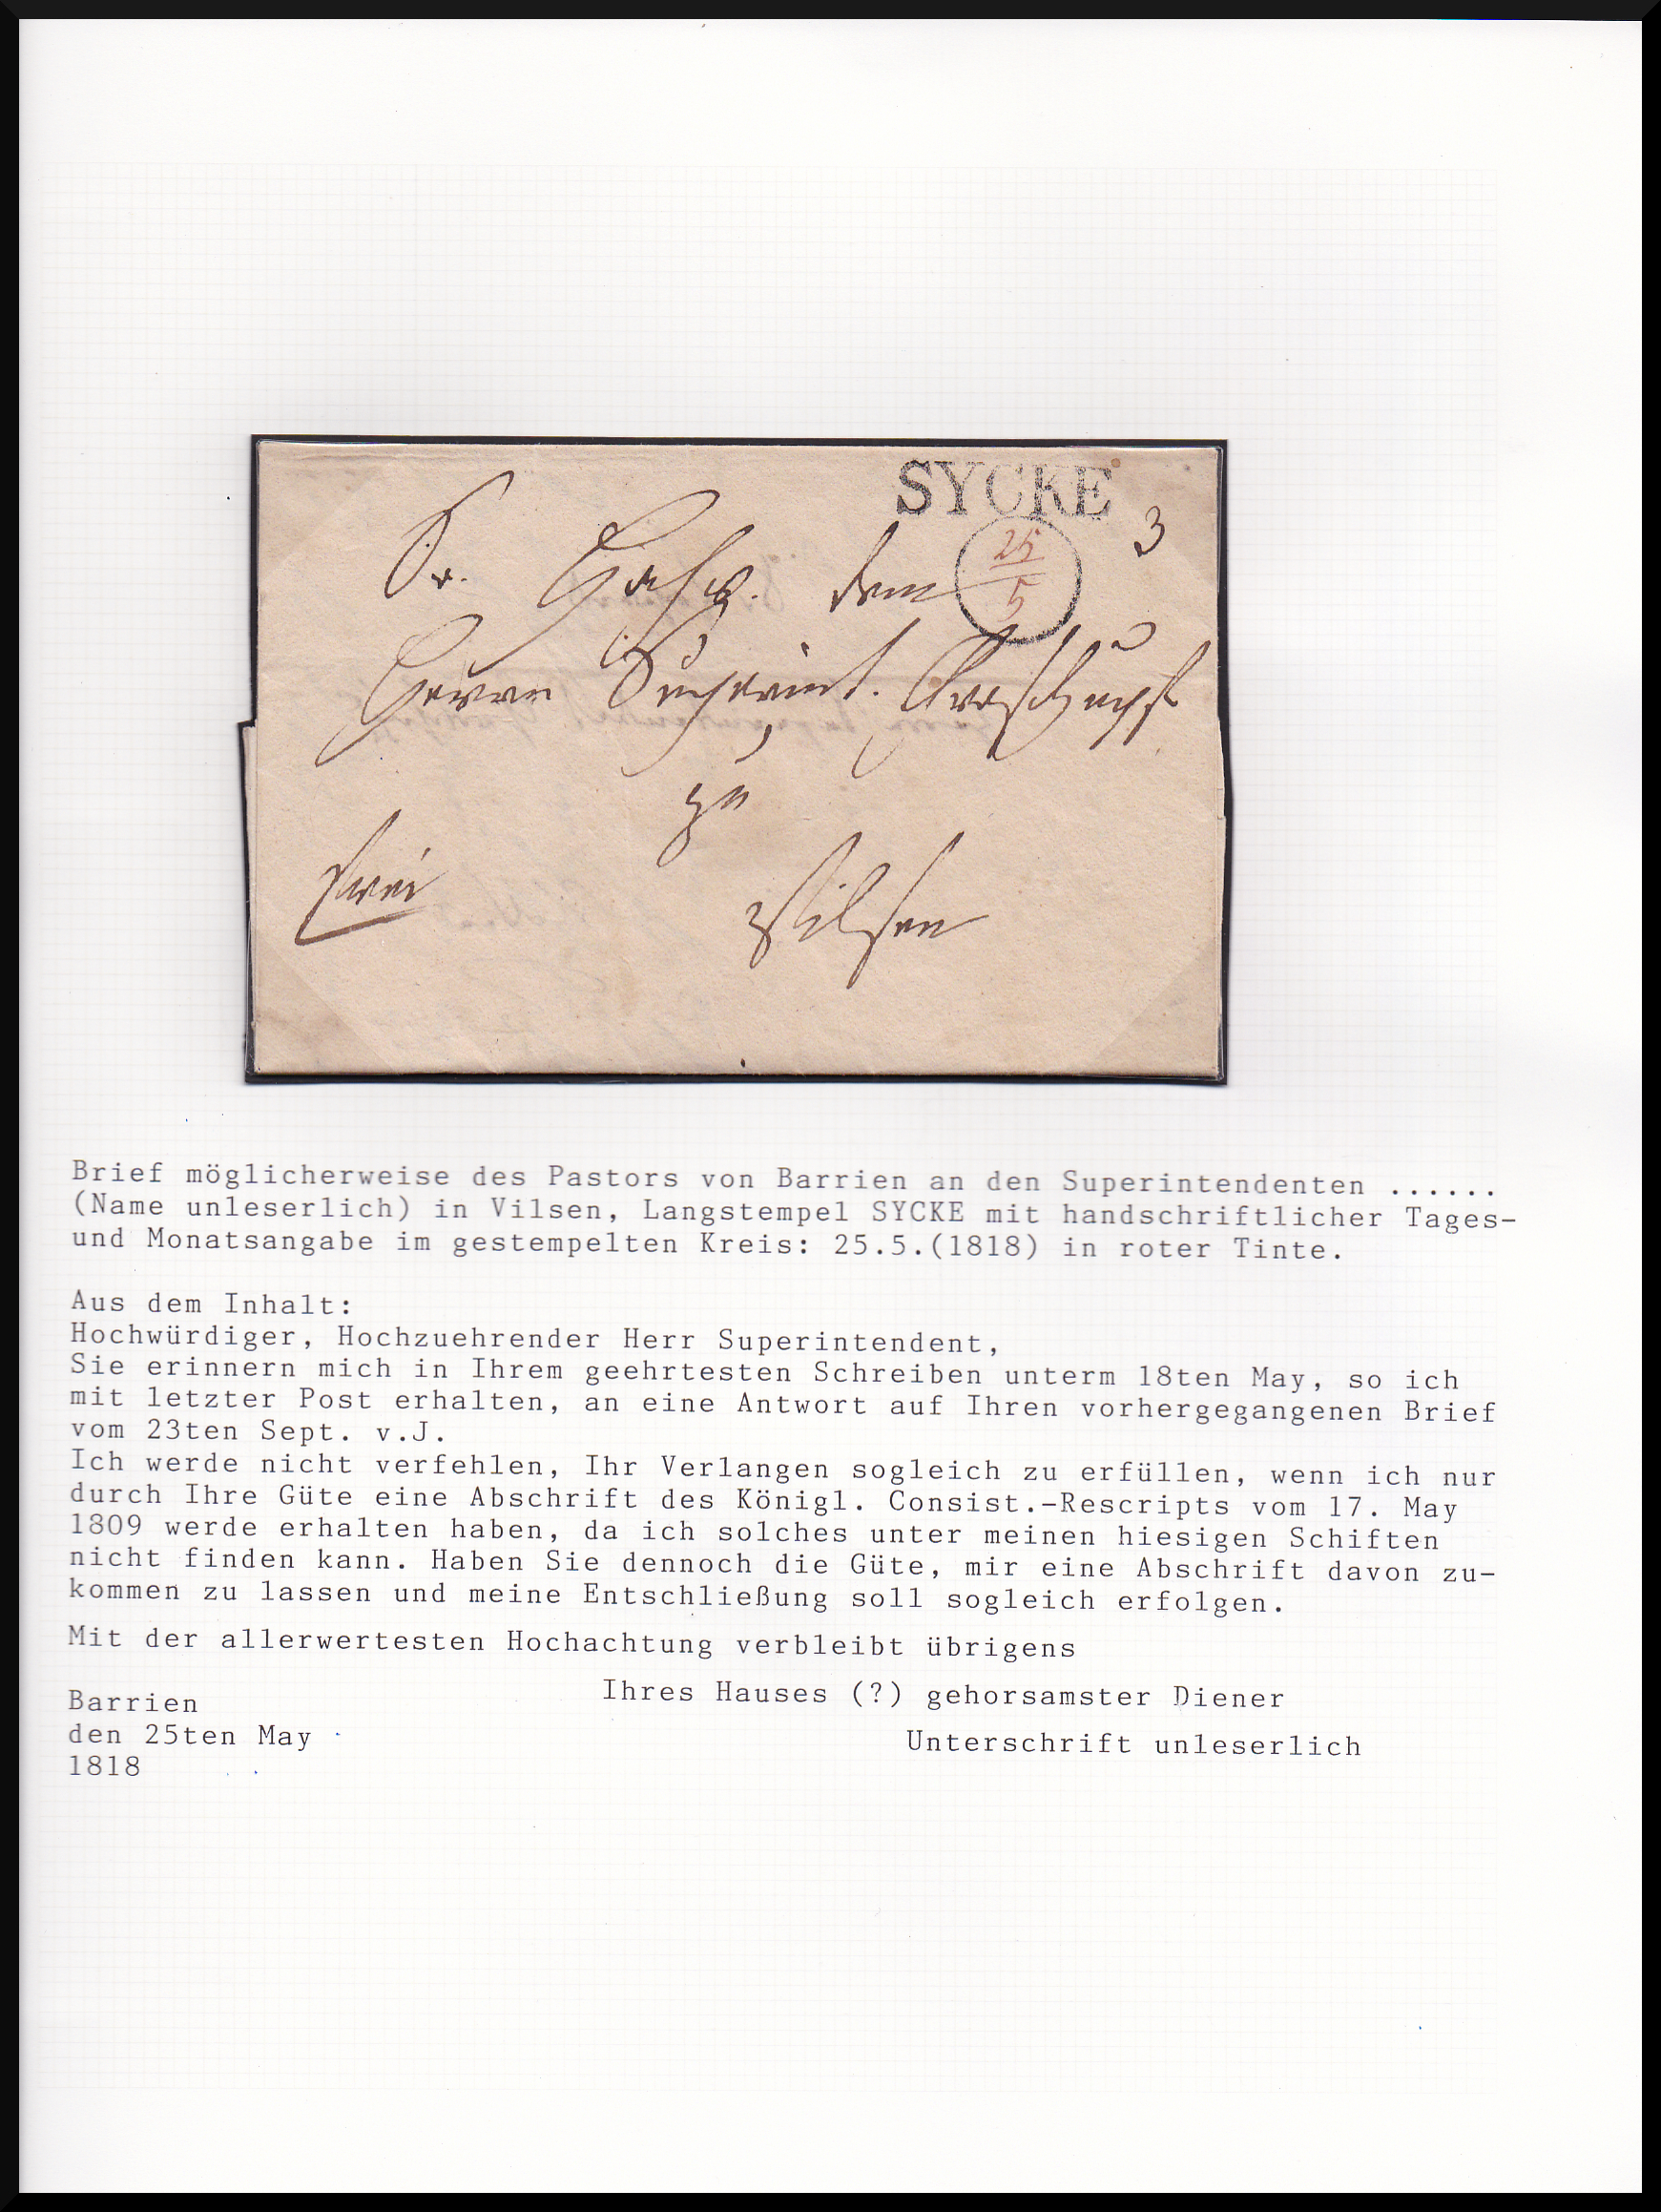 SYCKE
3
25
5
Sr. Hochw. dem
Herrn Superint.
zu
Vilsen
frei
Brief möglicherweise des Pastors von Barrien an den Superintendenten ......
(Name unleserlich) in Vilsen, Langstempel SYCKE mit handschriftlicher Tages-
und Monatsangabe im gestempelten Kreis: 25.5.(1818) in roter Tinte.
Aus dem Inhalt:
Hochwürdiger, Hochzuehrender Herr Superintendent,
Sie erinnern mich in Ihrem geehrtesten Schreiben unterm 18ten May, so ich
mit letzter Post erhalten, an eine Antwort auf Ihren vorhergegangenen Brief
vom 23ten Sept. v.J.
Ich werde nicht verfehlen, Ihr Verlangen sogleich zu erfüllen, wenn ich nur
durch Ihre Güte eine Abschrift des Königl. Consist.-Rescripts vom 17. May
1809 werde erhalten haben, da ich solches unter meinen hiesigen Schiften
nicht finden kann. Haben Sie dennoch die Güte, mir eine Abschrift davon zu-
kommen zu lassen und meine Entschließung soll sogleich erfolgen.
Mit der allerwertesten Hochachtung verbleibt übrigens
Ihres Hauses (?) gehorsamster Diener
Unterschrift unleserlich
Barrien
den 25ten May
1818